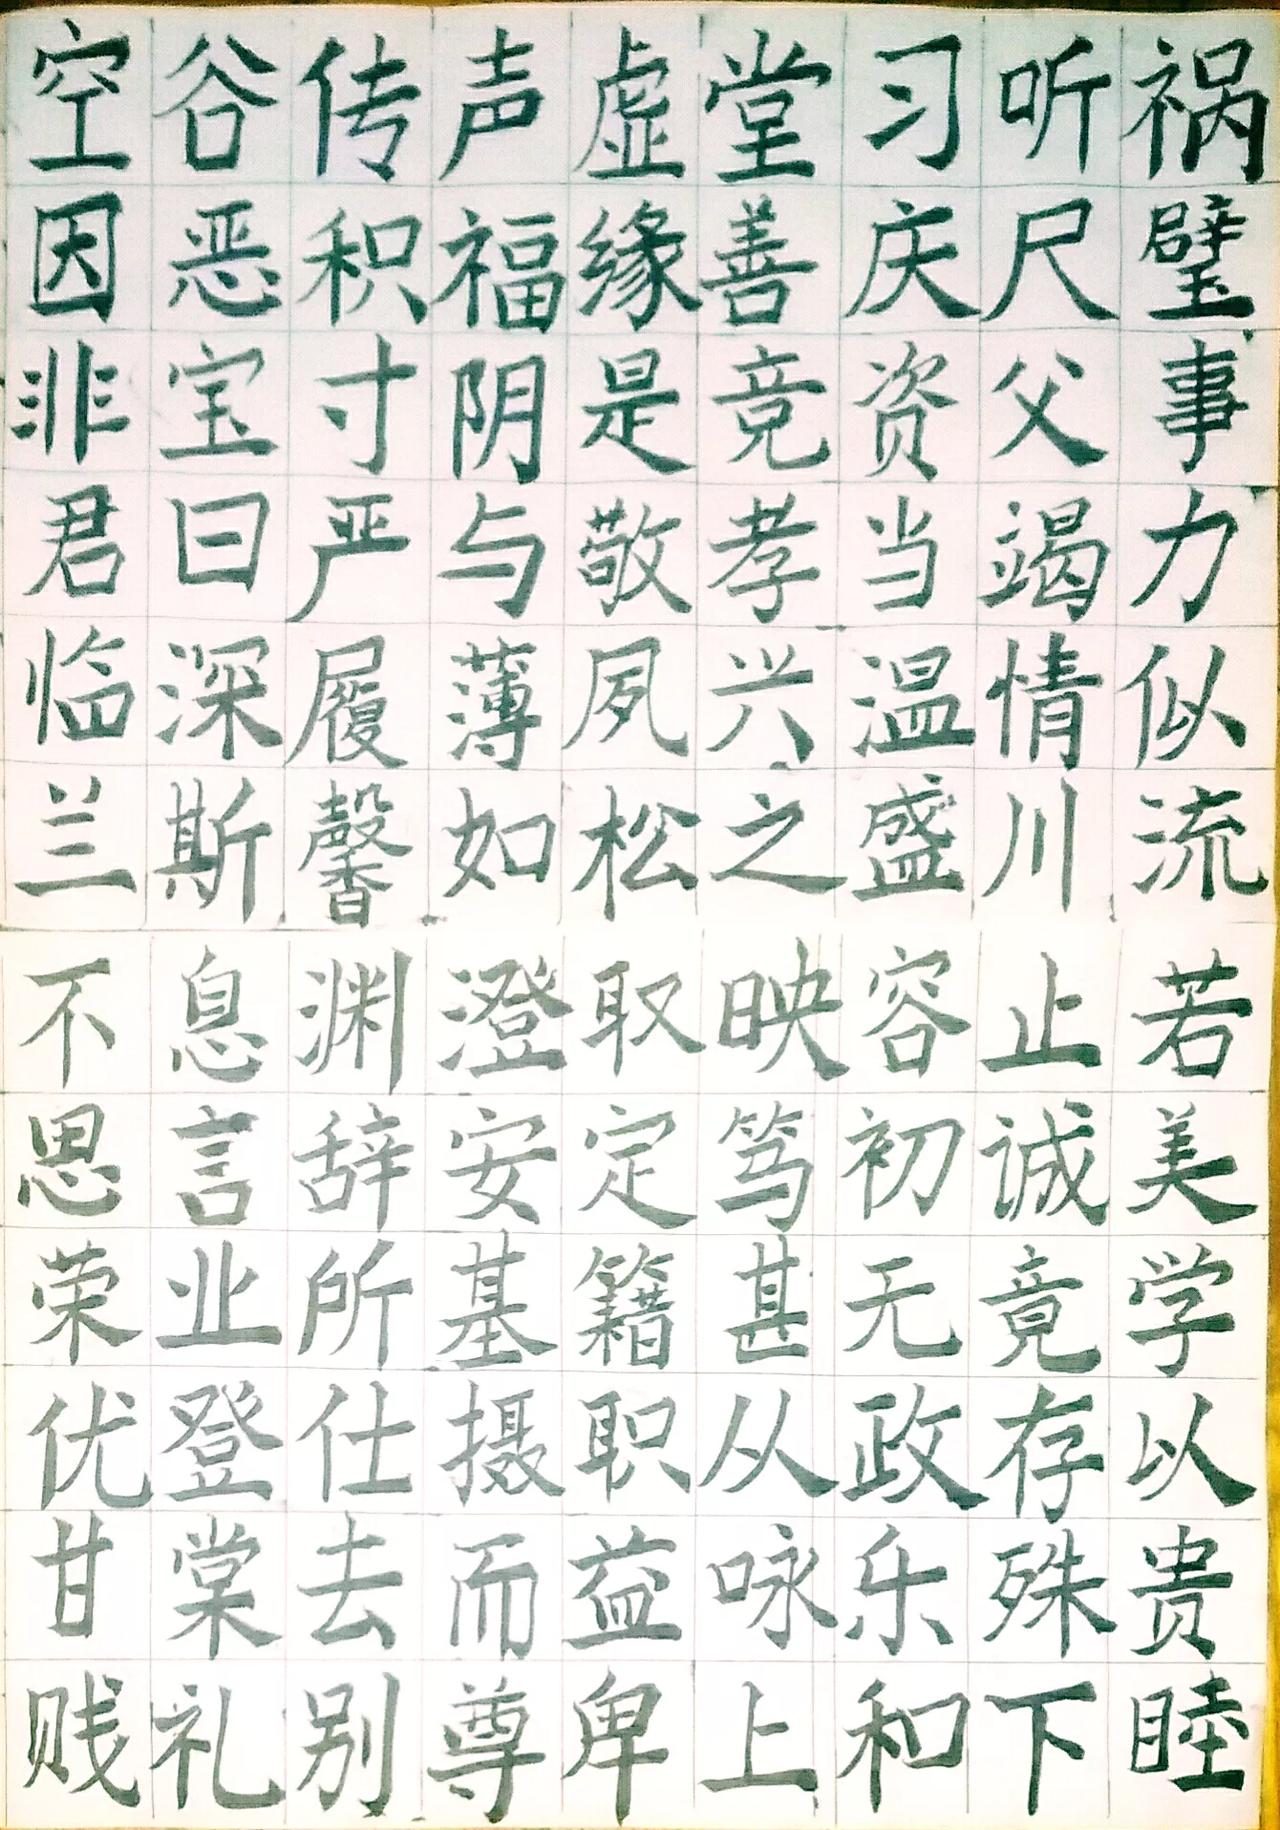 空谷传声虚堂习听祸
因恶积福缘善庆尺璧
非宝寸阴是竞资父事
君曰严与敬孝当竭力
临深履薄夙兴温凊似
兰斯馨如松之盛川流
不息渊澄取映容止若
思言辞安定笃初诚美
荣业所基籍甚无竟学
优登仕摄职从政存以
甘棠去而益咏乐殊贵
贱礼别尊卑上和下睦